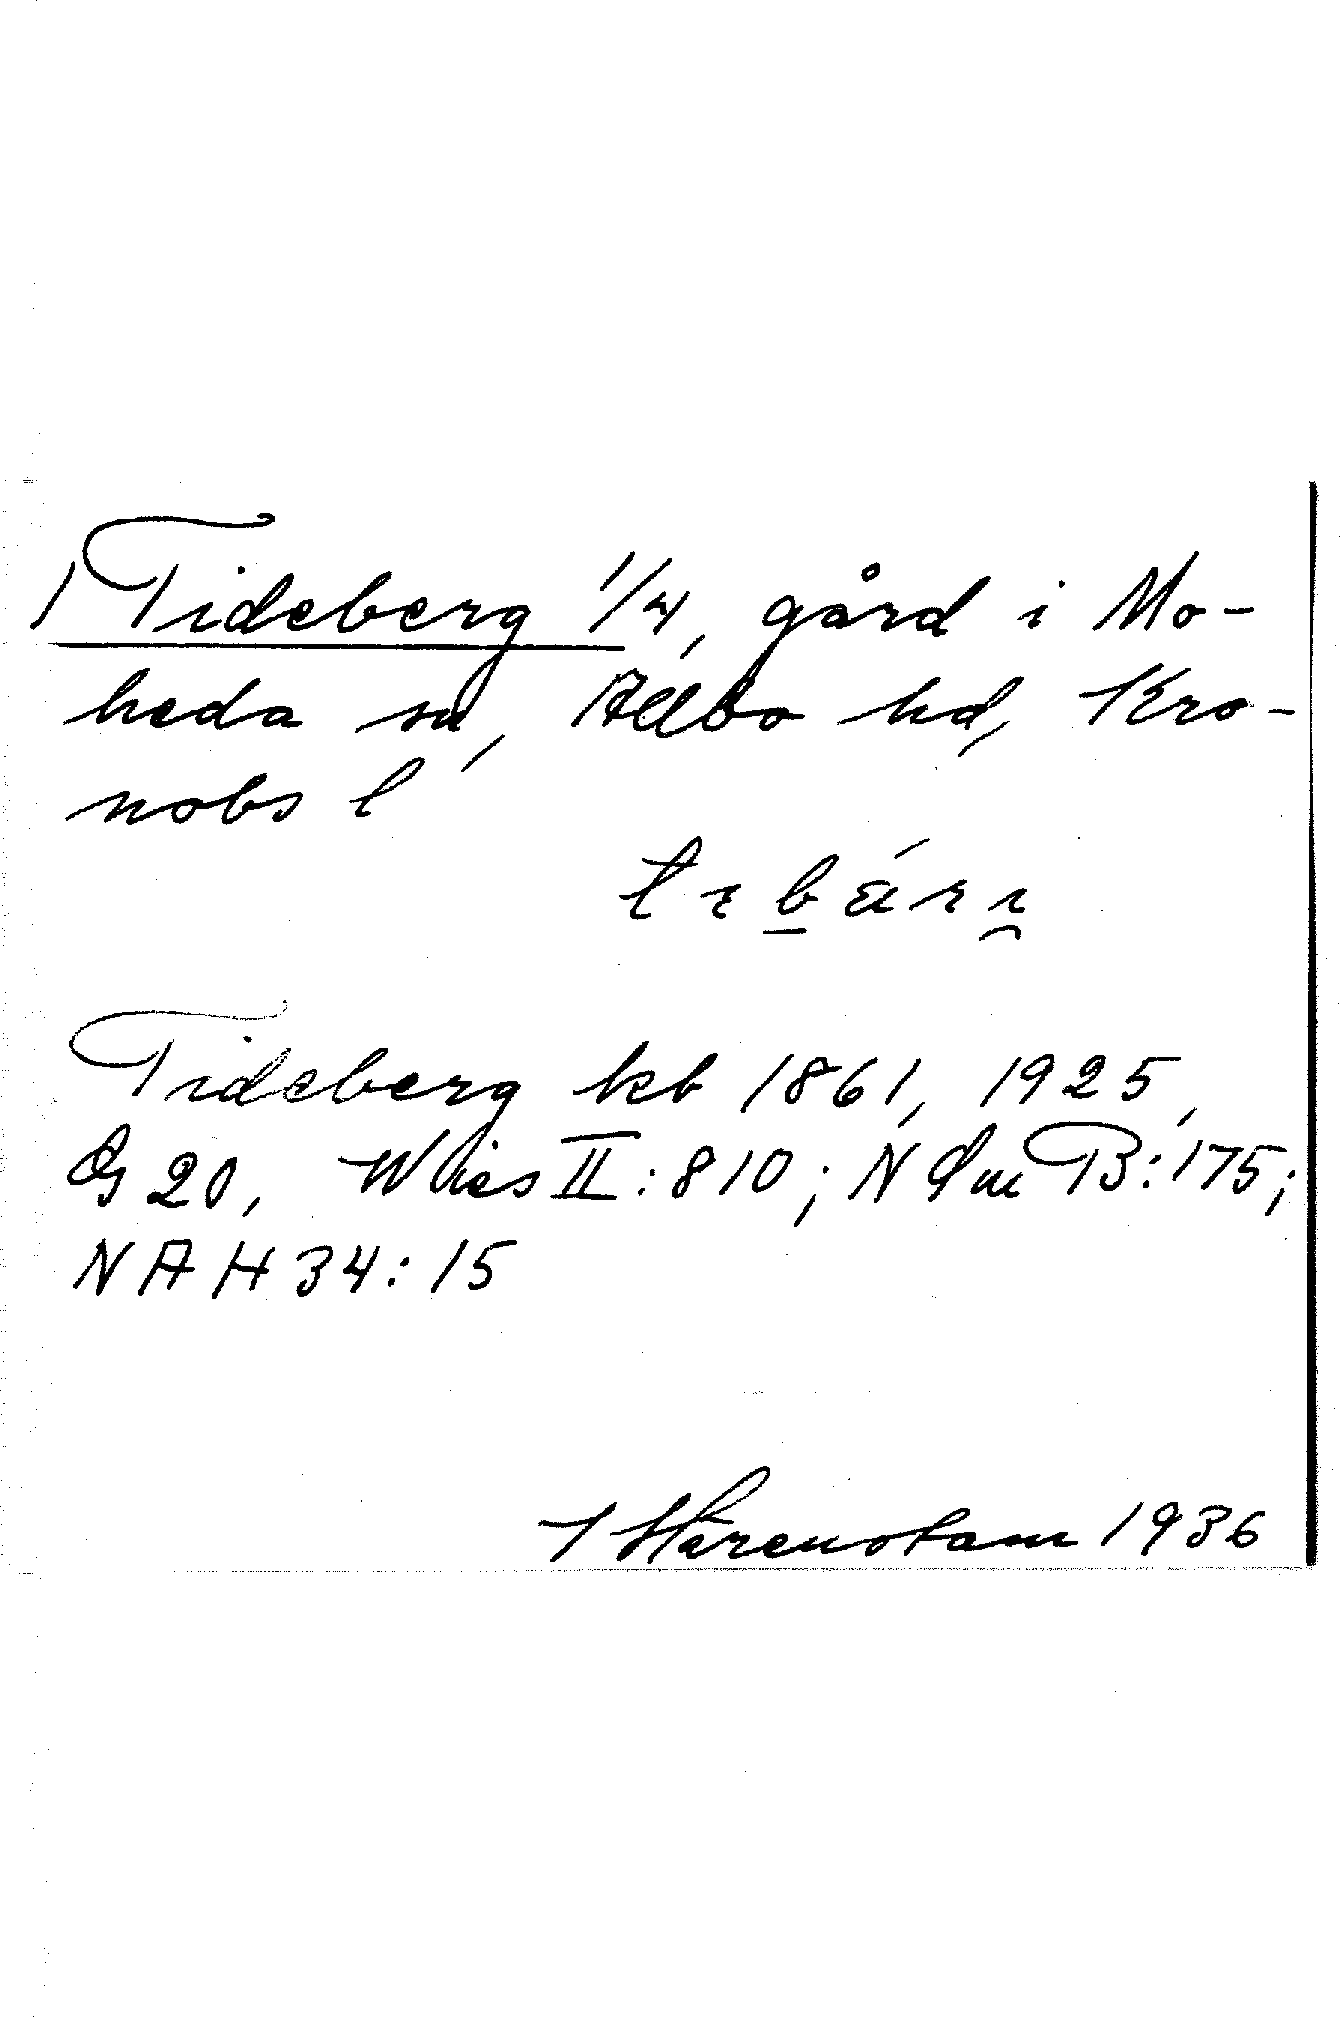 Tideberg 1/4, gård i Mo-
heda sn, Allbo hd, Kro-
nobs l
Tideberg kb 1861, 1925,
G 20, Wies II:810; N Om B:175;
NAH 34:15
Härenstam 1936